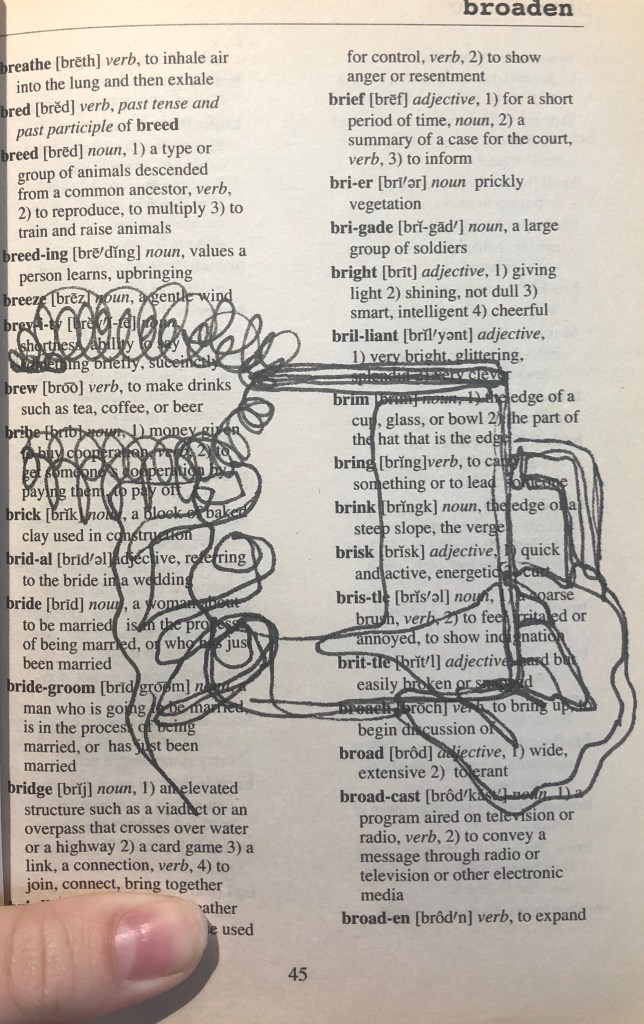 broaden
breathe [brĕth] verb, to inhale air
into the lung and then exhale
bred [brĕd] verb, past tense and
past participle of breed
breed [brēd] noun, 1) a type or
group of animals descended
from a common ancestor, verb,
2) to reproduce, to multiply 3) to
train and raise animals
breed-ing [brē'dĭng] noun, values a
person learns, upbringing
breeze [brēz] noun, a gentle wind
brev-i-ty [brĕv'ĭ-tē] noun,
shortness, ability to say
something briefly, succinctly
brew [broo] verb, to make drinks
such as tea, coffee, or beer
bribe [brīb] noun, 1) money given
to buy cooperation, verb, 2) to
get someone's cooperation by
paying them, to pay off
brick [brĭk] noun, a block of baked
clay used in construction
brid-al [brīd'əl] adjective, referring
to the bride in a wedding
bride [brīd] noun, a woman about
to be married, is in the process
of being married, or who has just
been married
bride-groom [brīd'groom] noun, a
man who is going to be married,
is in the process of being
married, or has just been
married
bridge [brĭj] noun, 1) an elevated
structure such as a viaduct or an
overpass that crosses over water
or a highway 2) a card game 3) a
link, a connection, verb, 4) to
join, connect, bring together
used
for control, verb, 2) to show
anger or resentment
brief [brēf] adjective, 1) for a short
period of time, noun, 2) a
summary of a case for the court,
verb, 3) to inform
bri-er [brī'ər] noun prickly
vegetation
bri-gade [brĭ-gād'] noun, a large
group of soldiers
bright [brīt] adjective, 1) giving
light 2) shining, not dull 3)
smart, intelligent 4) cheerful
bril-liant [brĭl'yənt] adjective,
1) very bright, glittering,
splendid 2) very clever
brim [brĭm] noun, 1) the edge of a
cup, glass, or bowl 2) the part of
the hat that is the edge
bring [brĭng]verb, to carry
something or to lead someone
brink [brĭngk] noun, the edge of a
steep slope, the verge
brisk [brĭsk] adjective, 1) quick
and active, energetic 2) curt
bris-tle [brĭs'əl] noun, 1) a coarse
brush, verb, 2) to feel irritated or
annoyed, to show indignation
brit-tle [brĭt'l] adjective, hard but
easily broken or snapped
broach [brōch] verb, to bring up, to
begin discussion of
broad [brôd] adjective, 1) wide,
extensive 2) tolerant
broad-cast [brôd'kăst'] noun, 1) a
program aired on television or
radio, verb, 2) to convey a
message through radio or
television or other electronic
media
broad-en [brôd'n] verb, to expand
45